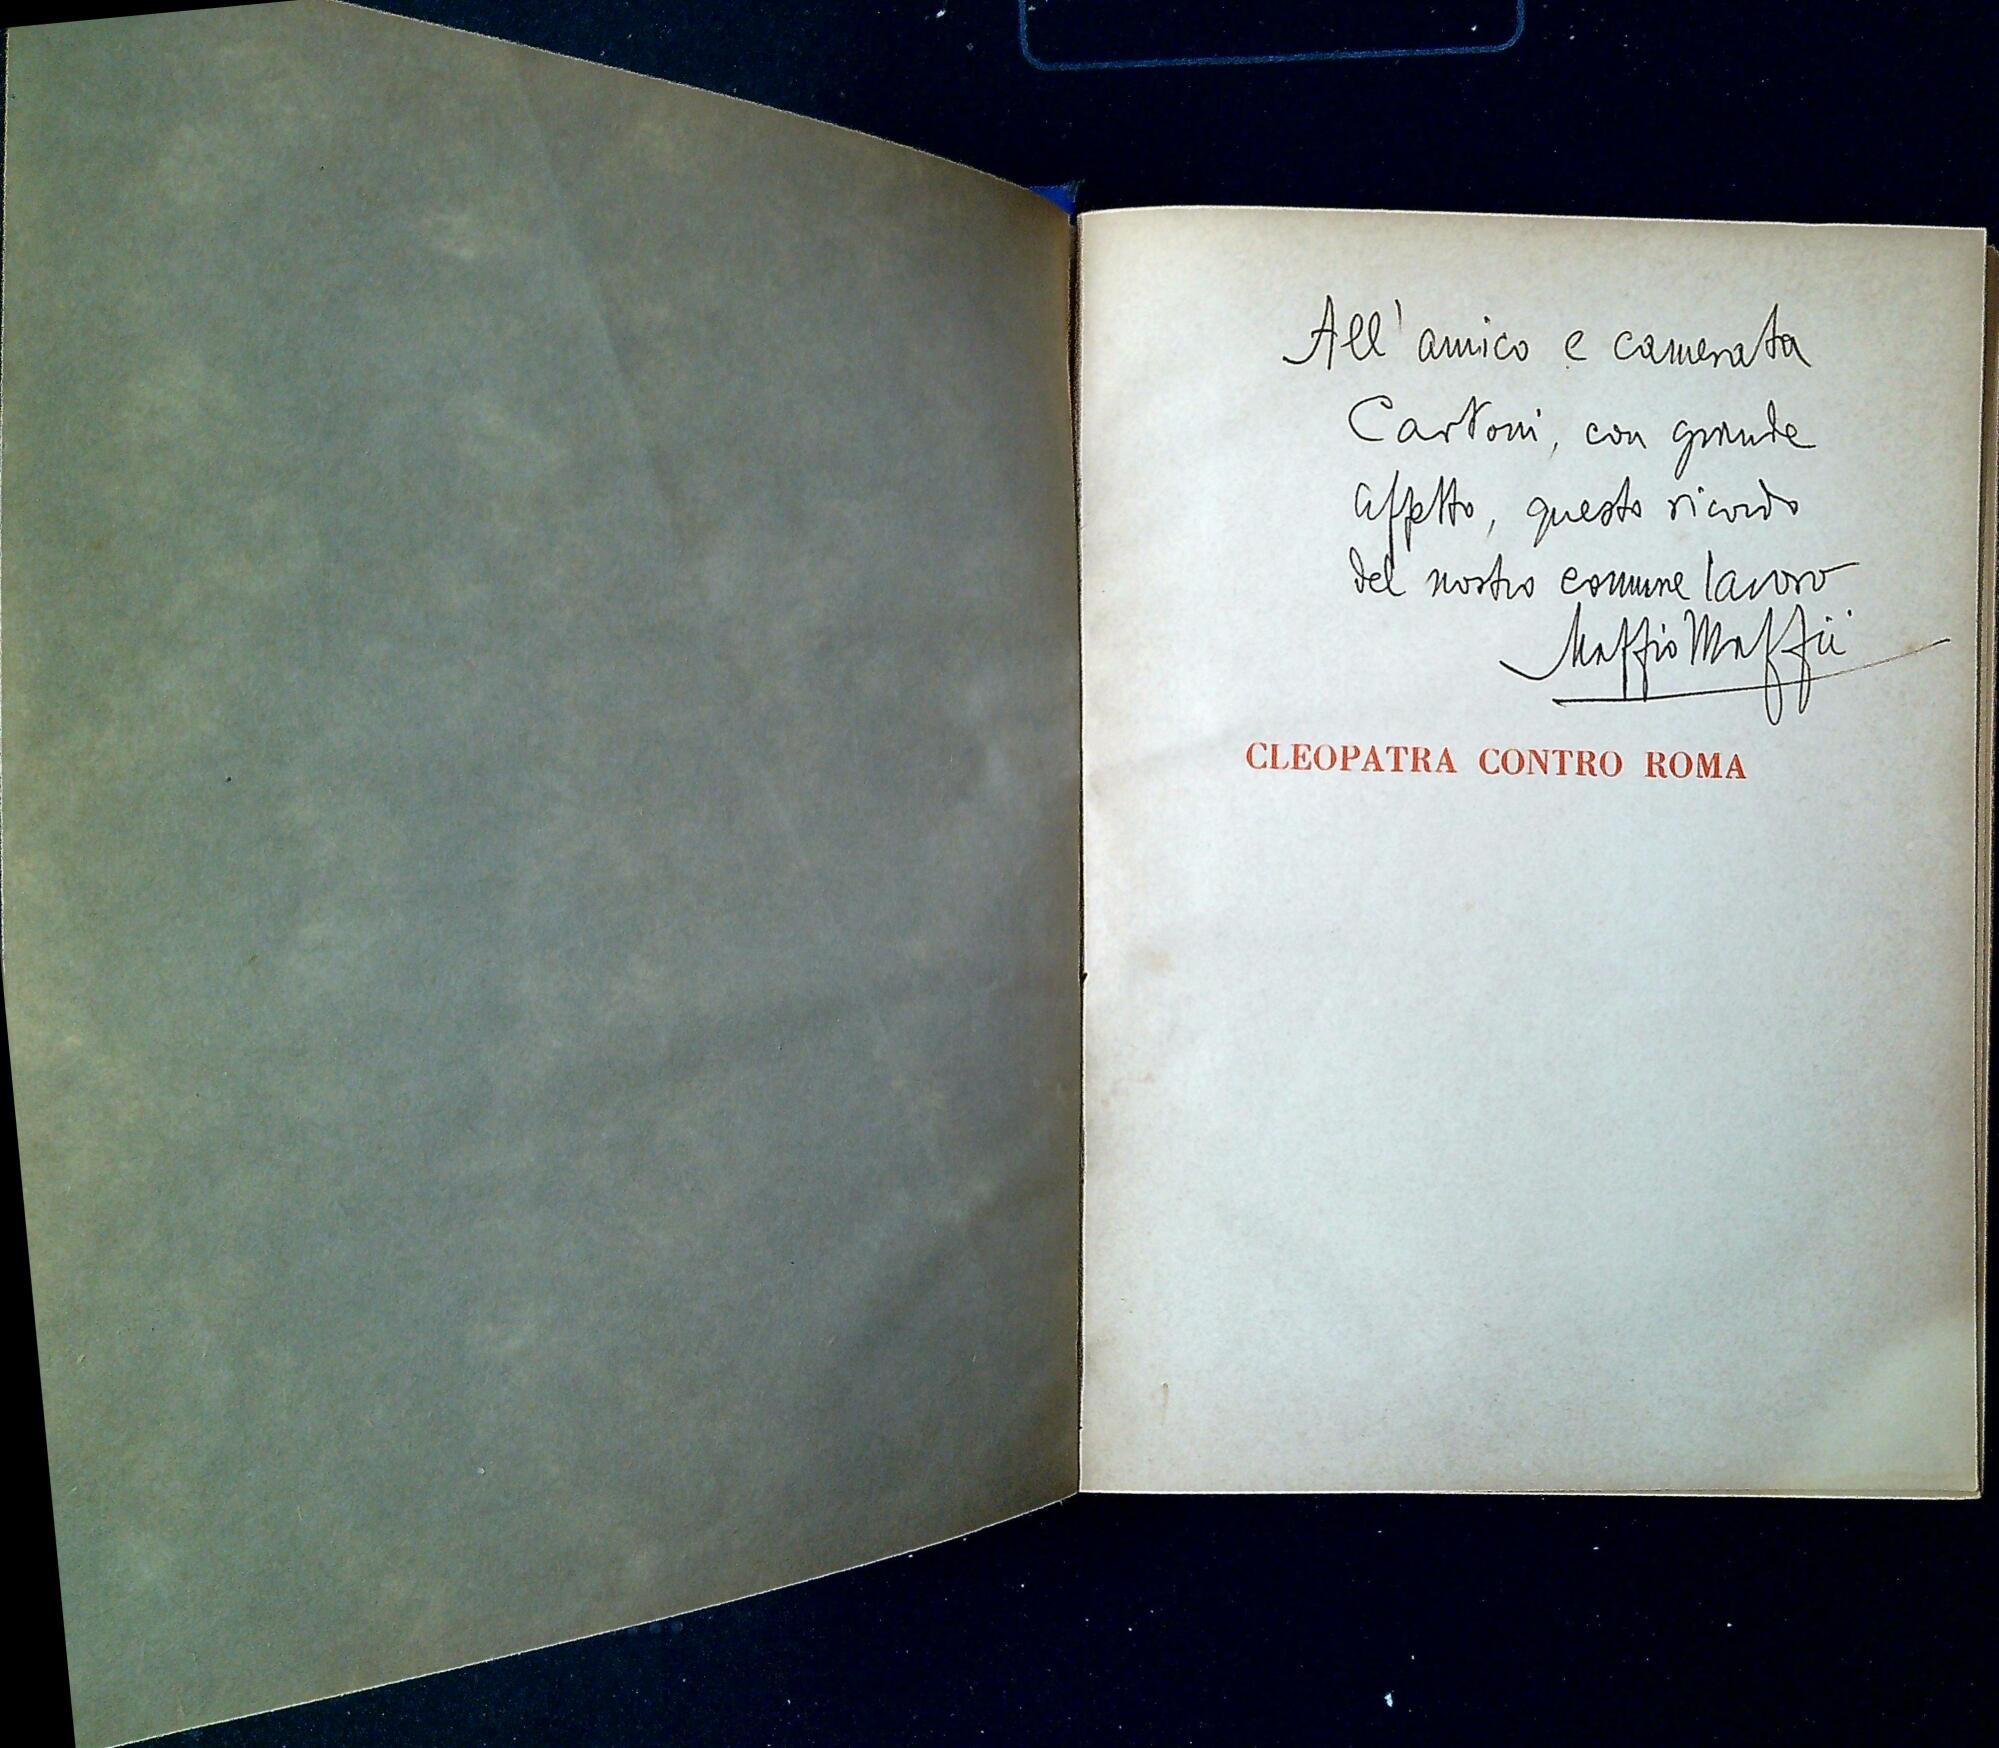 All'amico e camerata
Cartoni, con grande
affetto, questo ricordo
del nostro comune lavoro
Maffio Maffii
CLEOPATRA CONTRO ROMA